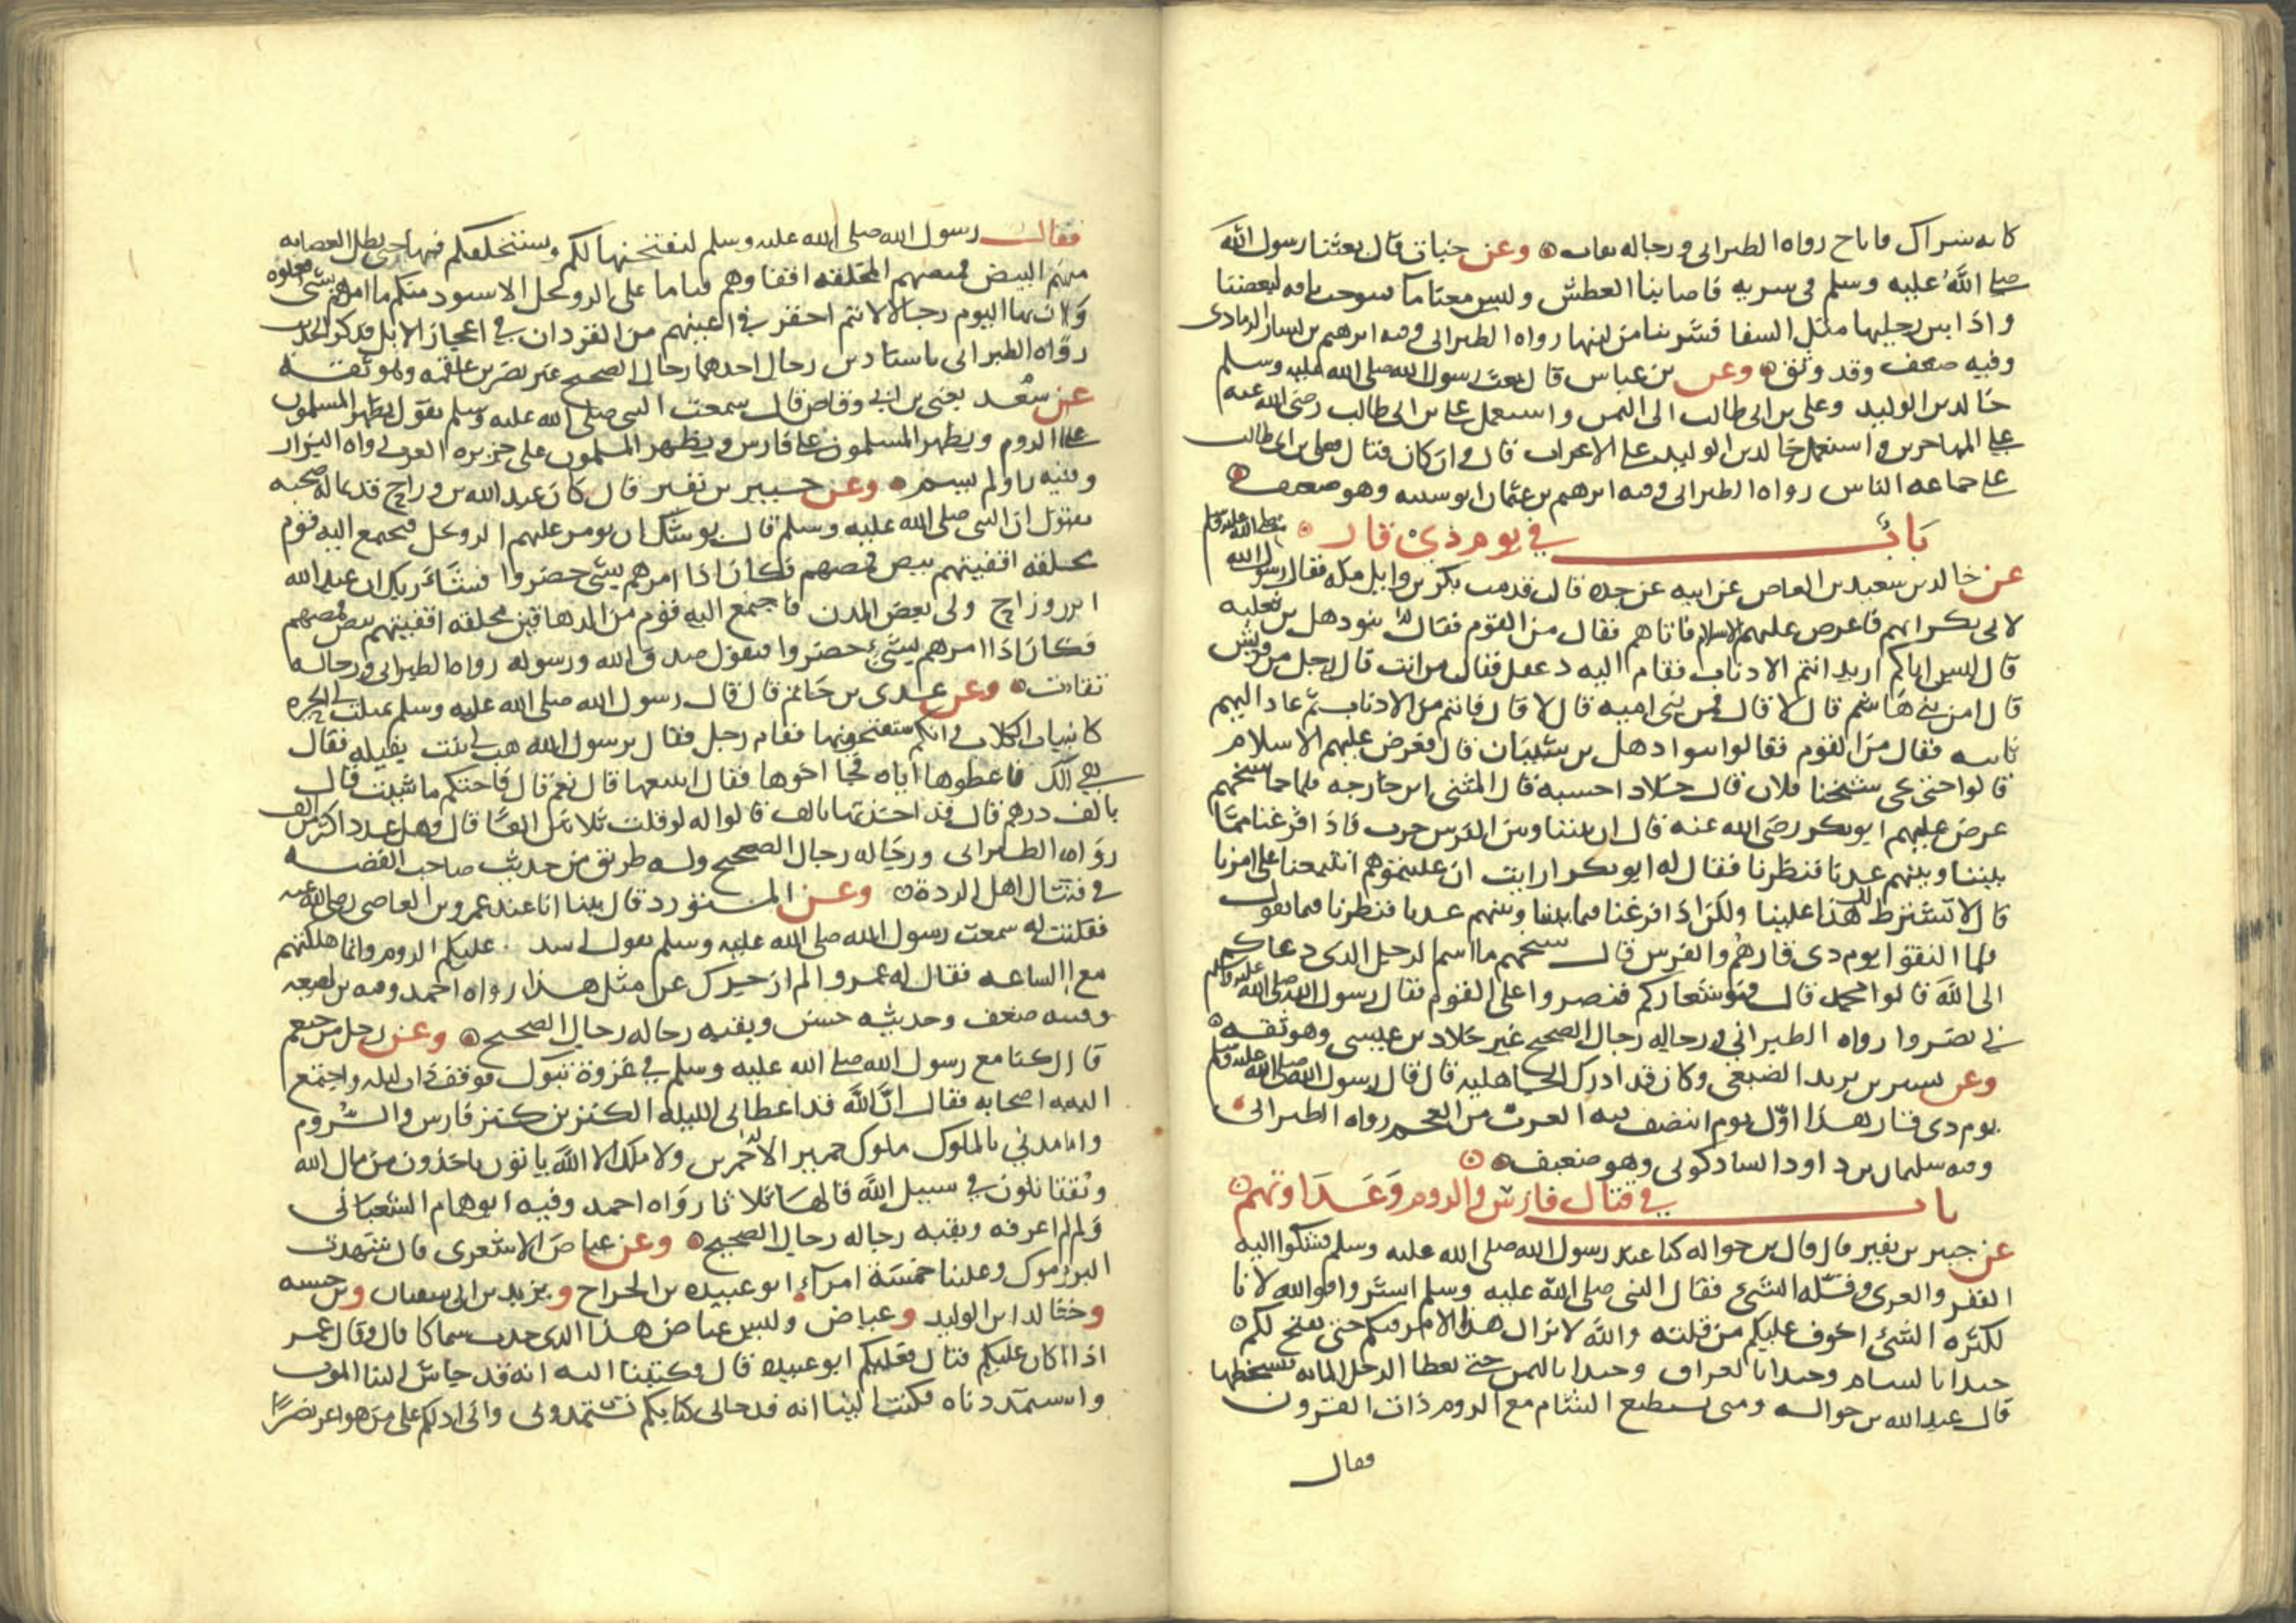 كانه شراك فاناخ رواه الطبراني ورجاله ثقات وعن خباب قال بعثنا رسول الله
صلى الله عليه وسلم في سرية فاصابنا العطش وليس معنا ما فتنوخت ناقة لبعضنا
واذا بين رجليها مثل السقا فشربنا من لبنها رواه الطبراني وفيه ابرهيم بن بسار الرمادي
وفيه ضعف وقد وثق وعن بن عباس قال بعث رسول الله صلى الله عليه وسلم
خالد بن الوليد وعلي بن ابي طالب الى اليمن واستعمل علي بن ابي طالب رضي الله عنه
على المهاجرين واستعمل خالد بن الوليد على الاعراب قال وان كان قتال فعلي بن ابي طالب
على جماعة الناس رواه الطبراني وفيه ابرهيم بن عثمان ابو شيبه وهو ضعيف
باب في يوم ذي قار
عن خالد بن سعيد بن العاص عن ابيه عن جده قال قدمت بكر بن وايل مكة فقال رسول الله صلى الله عليه وسلم
لابي بكر ايتهم فاعرض عليهم الاسلام فاتاهم فقال من القوم فقالوا بنو ذهل بن ثعلبه
قال ليس اياكم اريد انتم الاذناب فقام اليه دغفل فقال من انت قال رجل من قريش
قال امن بني هاشم قال لا قال فمن بني اميه قال لا قال فانتم من الاذناب ثم عاد اليهم
ثانيه فقال من القوم فقالوا بنوا ذهل بن شيبان قال فعرض عليهم الاسلام
قالوا حتى يجي شيخنا فلان قال خلاد احسبه قال المثنى ابن خارجه فلما جا شيخهم
عرض عليهم ابو بكر رضي الله عنه قال ان بيننا وبين الفرس حرب فاذا فرغنا مما
بيننا وبينهم عدنا فنظرنا فقال له ابو بكر ارايت ان غلبتموهم اتتبعنا على امرنا
قال لا نشترط لك هذا علينا ولكن اذا فرغنا فيما بيننا وبينهم عدنا فنظرنا فيما نقول
فلما التقوا يوم ذي قار هم والفرس قال شيخهم ما اسم الرجل الذي دعاكم
الى الله قالوا محمد قال فهو شعاركم فنصروا على القوم فقال رسول الله صلى الله عليه وسلم
بي نصروا رواه الطبراني ورجاله رجال الصحيح غير خلاد بن عيسى وهو ثقه
وعن بشير بن يزيد الضبعي وكان قد ادرك الجاهليه قال قال رسول الله صلى الله عليه وسلم
يوم ذي قار هذا اول يوم انتصف فيه العرب من العجم رواه الطبراني
وفيه سليمان بن داود الشاذكوني وهو ضعيف
باب في قتال فارس والروم وعداوتهم
عن جبير بن نفير قال قال بن حواله كنا عند رسول الله صلى الله عليه وسلم فشكوا اليه
الفقر والعري وقلة الشيء فقال النبي صلى الله عليه وسلم ابشروا فوالله لانا
لكثرة الشيء اخوف عليكم من قلته والله لا يزال هذا الامر فيكم حتى يفتح لكم
جندا بالشام وجندا بالعراق وجندا باليمن حتى يعطا الرجل المايه فيسخطها
قال عبد الله بن حواله ومن يستطيع الشام مع الروم ذات القرون
فقال
فقال رسول الله صلى الله عليه وسلم ليفتتحنها لكم وستخلفكم فيها حتى يظل العصابه
منهم البيض قمصهم المحلقه اقفاوهم قياما على الرويجل الاسود منكم ما امرهم بشي فعلوه
وان بها اليوم رجالا لانتم احقر في اعينهم من القردان في اعجاز الابل فذكر الحديث
رواه الطبراني باسنادين رجال احدهما رجال الصحيح غير نصر بن علقمه وهو ثقة
عن سعد يعني بن ابي وقاص قال سمعت النبي صلى الله عليه وسلم يقول يظهر المسلمون
على الروم ويظهر المسلمون على فارس ويظهر المسلمون على جزيرة العرب رواه البزار
وفيه راو لم يسم وعن جبير بن نفير قال كان عبد الله بن وراح قديما له صحبه
يقول ان النبي صلى الله عليه وسلم قال يوشك ان يومر عليهم الرويجل فيجتمع اليه قوم
محلقه اقفيتهم بيض قمصهم فكان اذا امرهم بشي حضروا فشاء ربك ان عبد الله
ابن وراح ولي بعض المدن فاجتمع اليه قوم من الدهاقين محلقه اقفيتهم بيض قمصهم
فكان اذا امرهم بشيء حضروا فيقول صدق الله ورسوله رواه الطبراني ورجاله
ثقات وعن عدي بن حاتم قال قال رسول الله صلى الله عليه وسلم مثلت لي الحيرة
كانياب الكلاب وانكم ستفتحونها فقام رجل فقال يرسول الله هب لي بنت بقيله فقال
هي لك فاعطوها اياه فجا اخوها فقال اتبيعها قال نعم قال فاحتكم ما شيت قال
بالف درهم قال قد اخذتها بالف قالوا له لو قلت ثلاثين الفا قال وهل عدد اكثر من الف
رواه الطبراني ورجاله رجال الصحيح وله طريق من حديث صاحب القصه
في قتال اهل الردة وعن المستورد قال بينا انا عند عمرو بن العاصي رضي الله عنه
فقلت له سمعت رسول الله صلى الله عليه وسلم يقول اشد عليكم الروم وانما هلكتهم
مع الساعه فقال له عمرو الم ازجرك عن مثل هذا رواه احمد وفيه بن لهيعه
وفيه ضعف وحديثه حسن وبقيه رجاله رجال الصحيح وعن رجل من خثعم
قال كنا مع رسول الله صلى الله عليه وسلم في غزوة تبوك فوقف ذات ليله واجتمع
اليه اصحابه فقال ان الله قد اعطاني الليلة الكنزين كنز فارس والروم
وامدني بالملوك ملوك حمير الاحمرين ولا ملك الا الله ياتون ياخذون من مال الله
وتقاتلون في سبيل الله قالها ثلاثا رواه احمد وفيه ابو همام الشعباني
ولم اعرفه وبقيه رجاله رجال الصحيح وعن عياض الاشعري قال شهدت
اليرموك وعلينا خمسة امرآء ابو عبيده بن الجراح ويزيد بن ابي سفيان وبن حسنه
وخالد ابن الوليد وعياض وليس عياض هذا الذي حدث سماكا قال وقال عمر
اذا كان عليكم قتال فعليكم ابو عبيده قال فكتبنا اليه انه قد جاش الينا الموت
واستمددناه فكتب الينا انه قد جاني كتابكم تستمدوني واني ادلكم على من هو اعز نصرا